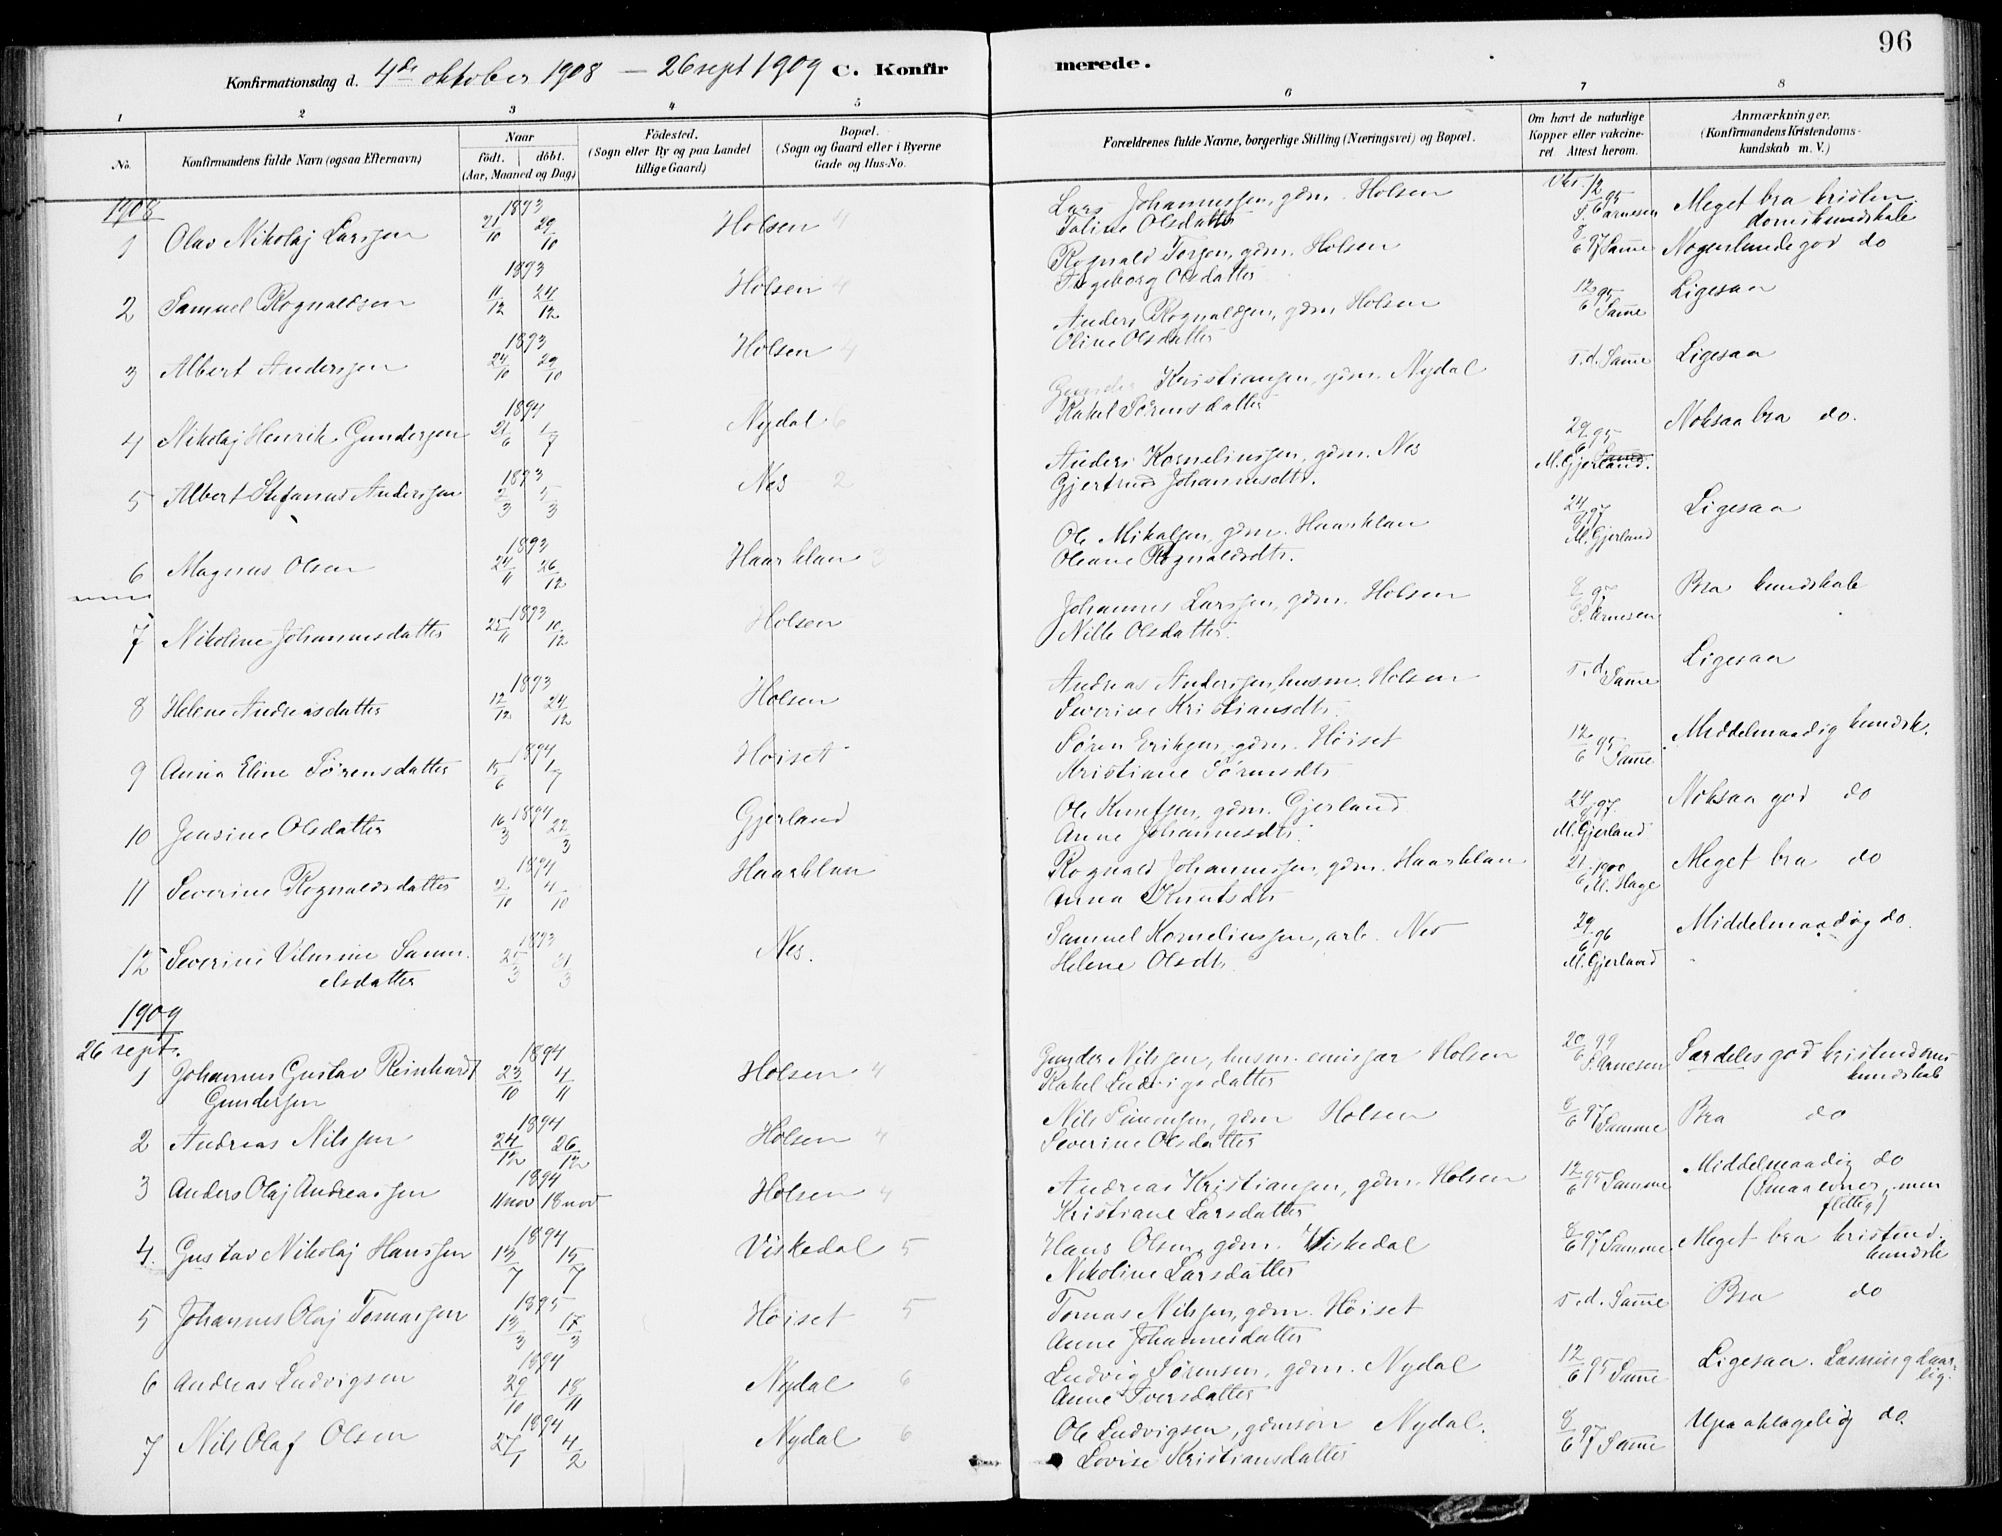 96
Konfirmationsdag d. 4de oktober 1908 — 26 sept 1909 C. Konfirmerede.
1 2 3 4 5 6 7 8
No.
Konfirmandens fulde Navn (ogsaa Efternavn)
Naar
födt. döbt.
(Aar, Maaned og Dag)
Födested.
(Sogn eller By og paa Landet
tillige Gaard)
Bopæl.
(Sogn og Gaard eller i Byerne
Gade og Hus-No.
Forældrenes fulde Navne, borgerlige Stilling (Næringsvei) og Bopæl.
Om havt de naturlige
Kopper eller vakcine-
ret. Attest herom.
Anmærkninger.
(Konfirmandens Kristendoms-
kundskab m. V.)
1908
1 Olav Nikolaj Larssen 1893 21/10 29/10 Holsen 4 Lars Johannessen, gdm. Holsen 95 S. Arnesen Meget bra kristen
Taline Olsdatter domskundskab
2 Samuel Rognaldsen 1893 11/12 24/12 Holsen 4 Rognald Torsen, gdm. Holsen 8/6 97 Samme Nogenlunde god do
Ingeborg Olsdatter
3 Albert Anderssen 1893 24/10 29/10 Holsen 4 Anders Rognaldsen, gdm. Holsen 12/6 95 Samme Ligesaa
Oline Olsdatter
4 Nikolaj Henrik Gunderssen 1894 21/6 1/7 Nydal 6 Kristianssen, gdm. Nydal s. d. Samme Ligesaa
Rakel Sørensdatter
5 Albert Stefanus Anderssen 1893 2/3 5/3 Nes 2 Anders Korneliussen, gdm. Nes 29/6 95 M. Gjerland. Noksaa bra do.
Gjertrud Johannesdtr.
6 Magnus Olsen 1893 24/11 26/12 Haarklau 3 Ole Mikalsen, gdm. Haarklau 24/6 97 M. Gjerland Ligesaa
Oleane Rognaldsdtr.
7 Nikoline Johannesdatter 1893 25/11 10/12 Holsen Johannes Larssen, gdm. Holsen 8/6 97 S. Arnesen Bra kundskab
Nille Olsdatter
8 Helene Andreasdatter 1893 12/12 24/12 Holsen Andreas Anderssen, husm. Holsen s. d. Samme Ligesaa
Severine Kristiansdtr.
9 Anna Eline Sørensdatter 1894 15/6 1/7 Höiset Søren Erikssen, gdm. Höiset 12/6 95 Samme Middelmaadig kundsk.
Kristiane Sørensdtr
10 Jensine Olsdatter 1894 16/3 22/3 Gjerland Ole Knutsen, gdm. Gjerland 24/6 97 M. Gjerland Noksaa god do
Anne Johannesdtr.
11 Severine Rognaldsdatter 1894 2/10 4/10 Haarklau Rognald Johannessen, gdm. Haarklau 21/6 1900 M. Hage Meget bra do
Anna Knutsdtr
12 Severine Vilmine Samu- 1893 25/3 31/3 Nes. Samuel Korneliussen, arb. Nes 29/6 96 M. Gjerland Middelmaadig do.
elsdatter Helene Olsdtr.
1909
26 sept.
1 Johannes Gustav Reinhardt 1894 23/10 4/11 Holsen 4 Gunder Nilssen, husm. emissær Holsen 20/6 99 S. Arnesen Særdeles god kristendoms
Gunderssen Rakel Ludvigsdatter kundskab
2 Andreas Nilssen 1894 24/12 26/12 Holsen 4 Nils Simonssen, gdm Holsen 8/6 97 Samme Bra do
Severine Olsdatter
3 Anders Olaj Andreassen 1894 11 nov 18 nov Holsen 4 Andreas Kristianssen, gdm. Holsen 12/6 95 Samme Middelmaadig do
Kristiane Larsdatter (Smaa evner, men
flittig)
4. Gustav Nikolaj Hanssen 1894 13/7 15/7 Viskedal 5 Hans Olsen, gdm. Viskedal 8/6 97 Samme Meget bra kristend.
Nikoline Larsdatter kundsk
5 Johannes Olaj Tomassen 1895 13/3 17/3 Höiset 5 Tomas Nilssen, gdm. Höiset s. d. Samme Bra do
Anne Johannesdatter
6 Andreas Ludvigsen 1894 29/10 18/11 Nydal 6 Ludvig Sørensen, gdm. Nydal 12/6 95 Samme Ligesaa. Læsning daar-
Anne Iversdatter lig.
7 Nils Olaf Olsen 1894 27/1 4/2 Nydal 6 Ole Ludvigsen, gdmsøn Nydal. 8/6 97 Samme Upaaklagelig do.
Lovise Kristiansdatter